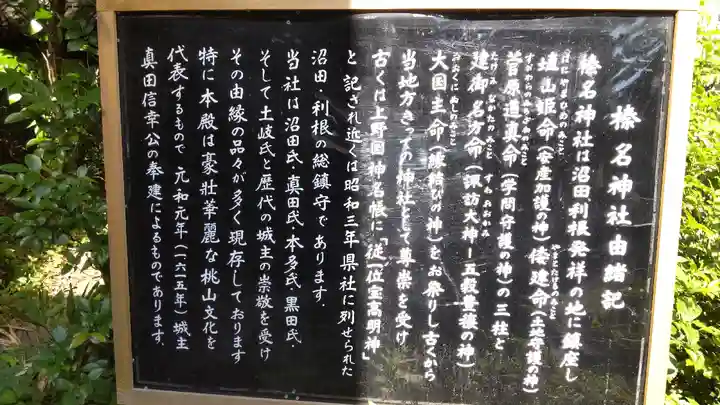 榛名神社由緒記
榛名神社は沼田利根発祥の地に鎮座し
埴山姫命(安産加護の神)倭建命(土守護の神)
菅原道真命(学問守護の神)の三柱と
建御名方命(諏訪大神―五穀豊穣の神)
大国主命(縁結びの神)をお祭りし古くから
当地方きっての神社として尊崇を受け
古くは上野国神名帳に「従一位宝高明神」
と記され近くは昭和三年県社に列せられた
沼田・利根の総鎮守であります.
当社は沼田氏.真田氏.本多氏.黒田氏.
そして土岐氏と歴代の城主の崇敬を受け
その由縁の品々が多く現存しております
特に本殿は豪壮華麗な桃山文化を
代表するもので元和元年(一六一五年)城主
真田信幸公の奉建によるものであります.